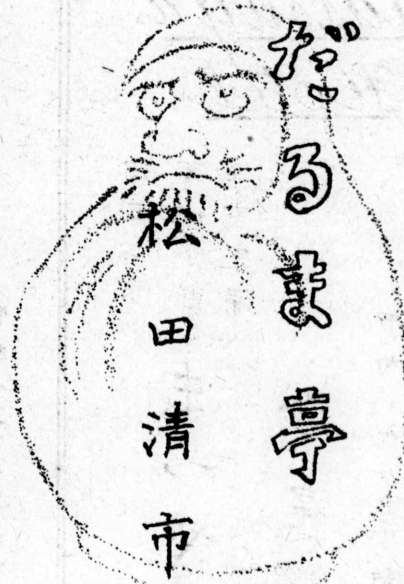 だるま亭
松田清市